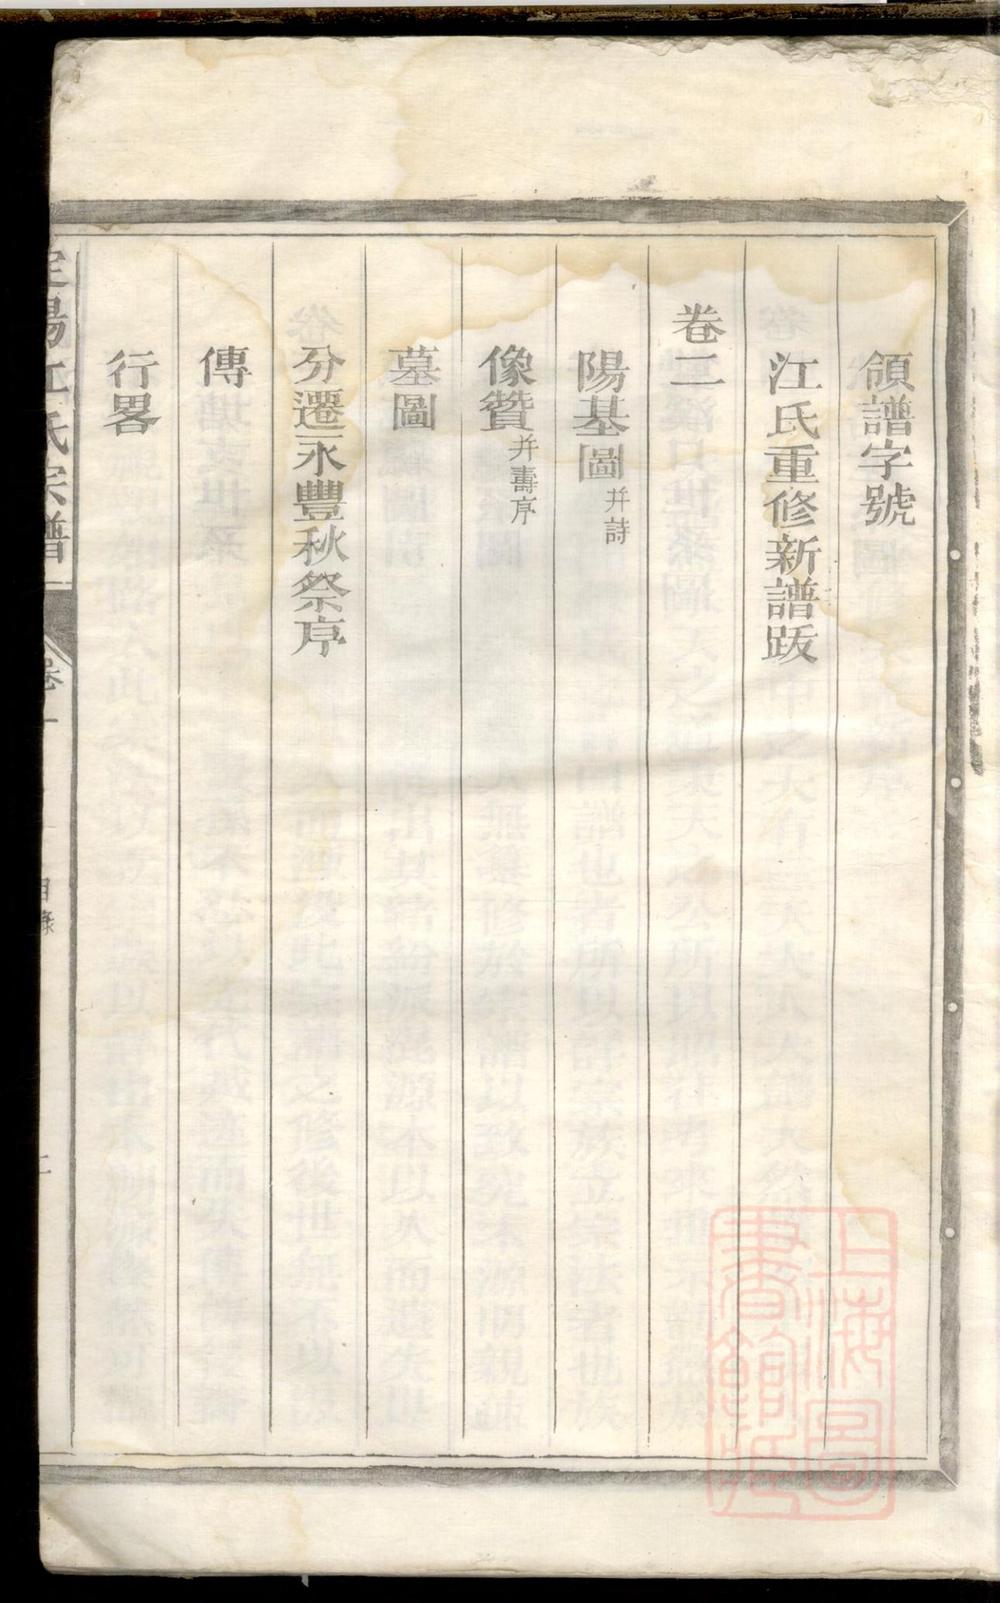 領譜字號
江氏重修新譜跋
卷二
陽基圖 并詩
像贊 并壽序
墓圖
分遷永豐秋祭序
傳
行畧
陽江氏宗譜
卷一
目錄
二
上海圖書館藏